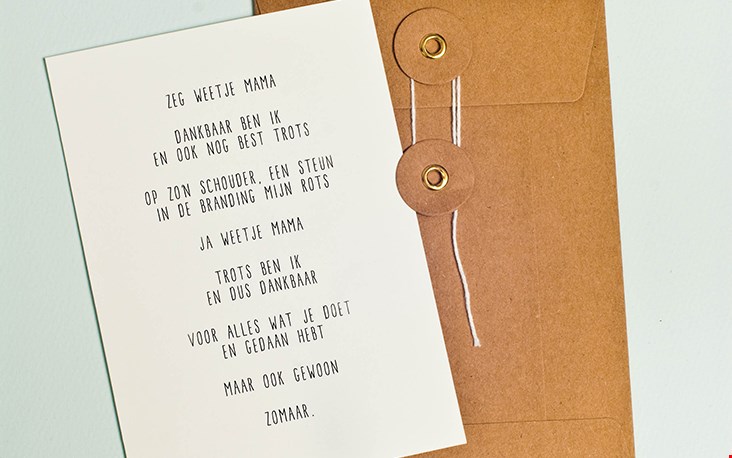 ZEG WEETJE MAMA
DANKBAAR BEN IK
EN OOK NOG BEST TROTS
OP ZO'N SCHOUDER, EEN STEUN
IN DE BRANDING MIJN ROTS
JA WEETJE MAMA
TROTS BEN IK
EN DUS DANKBAAR
VOOR ALLES WAT JE DOET
EN GEDAAN HEBT
MAAR OOK GEWOON
ZOMAAR.